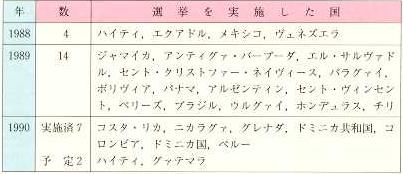 年 数 選挙を実施した国
1988 4 ハイティ，エクアドル，メキシコ，ヴェネズエラ
1989 14 ジャマイカ，アンティグァ・バーブーダ，エル・サルヴァド
ル，セント・クリストファー・ネイヴィース，パラグァイ，
ボリヴィア，パナマ，アルゼンティン，セント・ヴィンセン
ト，ベリーズ，ブラジル，ウルグァイ，ホンデュラス，チリ
1990 実施済7 コスタ・リカ，ニカラグァ，グレナダ，ドミニカ共和国，コ
ロンビア，ドミニカ国，ペルー
予定2 ハイティ，グァテマラ